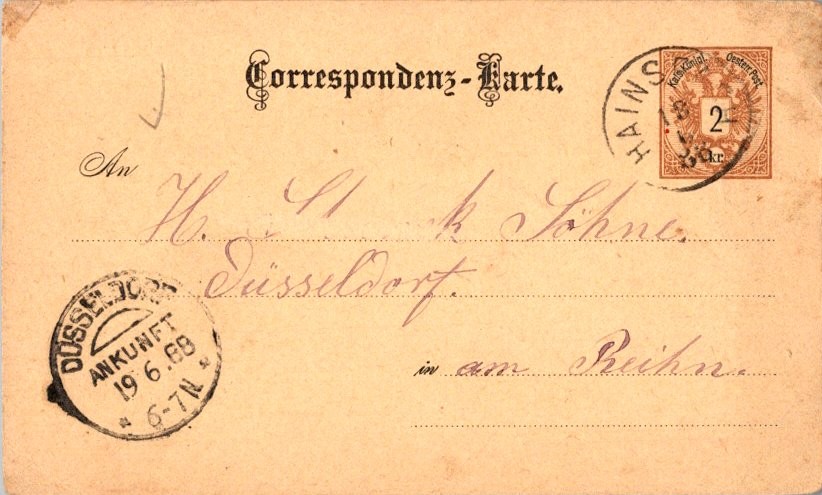 Correspondenz-Karte.
Kais. Königl. Oesterr. Post
2
kr.
HAINS
18
6
88
An
H. Söhne.
Düsseldorf.
in am Reihn.
DÜSSELDORF
ANKUNFT
19 6.88
* 6-7N *